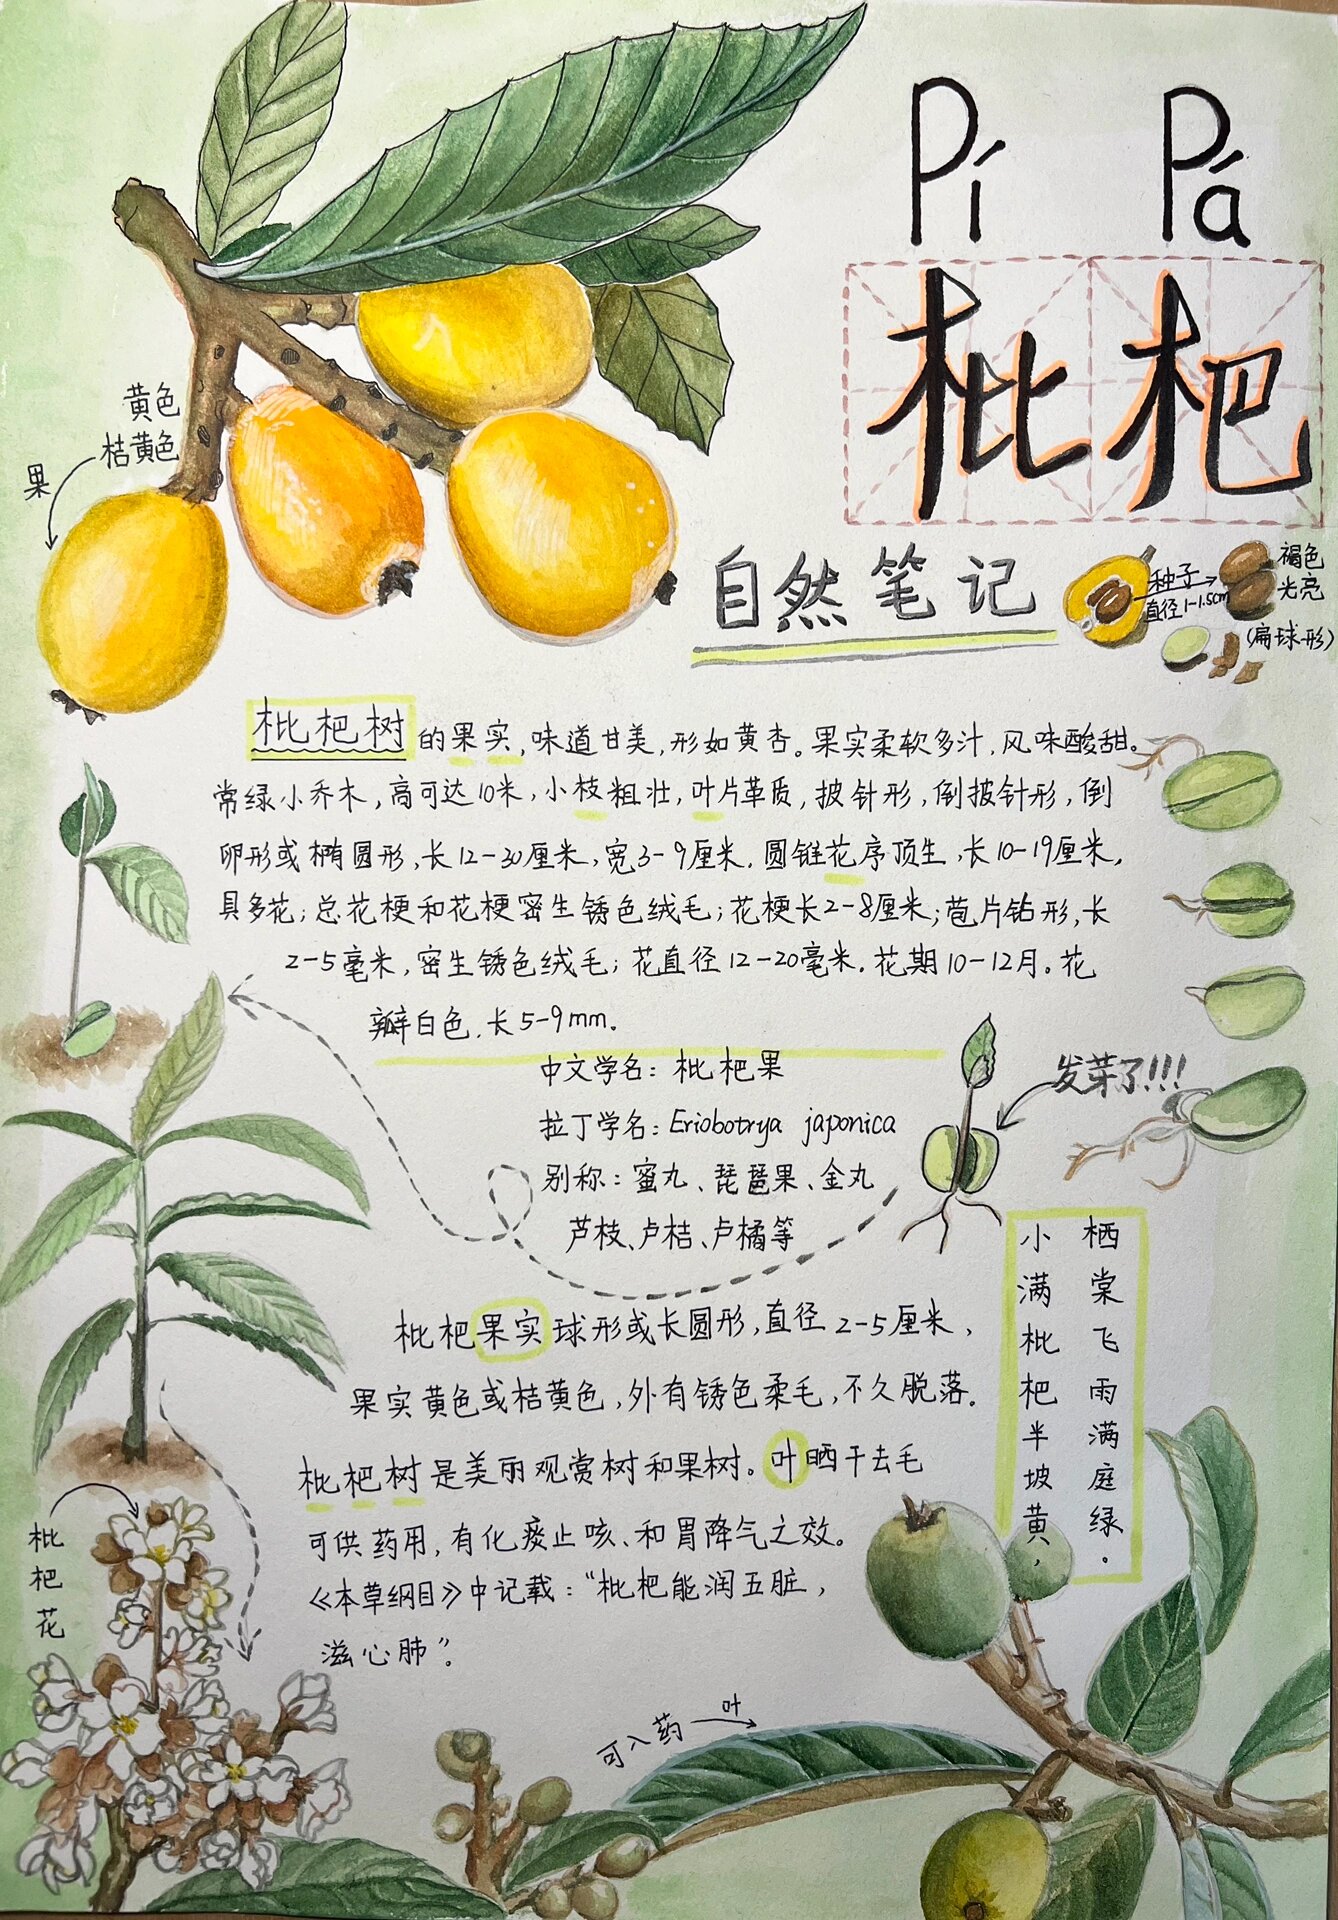 Pí Pá
枇杷
自然笔记
黄色
桔黄色
果
种子
直径1-1.5cm
褐色
光亮
(扁球形)
枇杷树的果实,味道甘美,形如黄杏。果实柔软多汁,风味酸甜。
常绿小乔木,高可达10米,小枝粗壮,叶片革质,披针形,倒披针形,倒
卵形或椭圆形,长12-30厘米,宽3-9厘米.圆锥花序顶生,长10-19厘米,
具多花;总花梗和花梗密生锈色绒毛;花梗长2-8厘米;苞片钻形,长
2-5毫米,密生锈色绒毛;花直径12-20毫米.花期10-12月。花
瓣白色.长5-9mm.
中文学名:枇杷果
拉丁学名:Eriobotrya japonica
别称:蜜丸、琵琶果、金丸
芦枝、卢桔、卢橘等
发芽了!!!
枇杷果实球形或长圆形,直径2-5厘米,
果实黄色或桔黄色,外有锈色柔毛,不久脱落.
枇杷树是美丽观赏树和果树。叶晒干去毛
可供药用,有化痰止咳、和胃降气之效。
《本草纲目》中记载:“枇杷能润五脏,
滋心肺”。
小满枇杷半坡黄,
栖棠飞雨满庭绿.
枇杷花
可入药
叶